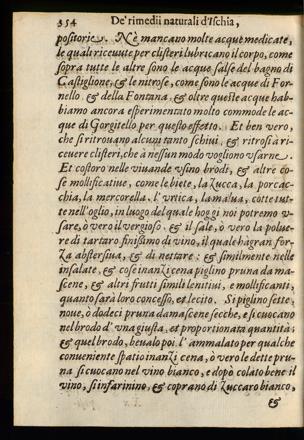 354 De' rimedii naturali d'Ischia,
positorie. Nè mancano molte acque medicate,
le quali riceuute per clisteri lubricano il corpo, come
sopra tutte le altre sono le acque salse del bagno di
Castiglione, & le nitrose, come sono le acque di For-
nello, & della Fontana, & oltre queste acque hab-
biamo ancora esperimentato molto commode le ac-
que di Gorgitello per questo effetto. Et ben vero,
che si ritrouano alcuni tanto schiui, & ritrosi à ri-
ceuere clisteri, che à nessun modo vogliono vsarne.
Et costoro nelle viuande vsino brodi, & altre co-
se mollificatiue, come le biete, la zucca, la porcac-
chia, la mercorella, l'vrtica, la malua, cotte tut-
te nell'oglio, in luogo del quale hoggi noi potremo v-
sare, ò vero il vergioso, & il sale, ò vero la polue-
re di tartaro finissimo di vino, il quale hà gran for-
za abstersiua, & di nettare: & similmente nelle
insalate, & cose inanzi cena piglino pruna da ma-
scene, & altri frutti simili lenitiui, e mollificanti,
quanto sarà loro concesso, et lecito. Si piglino sette,
noue, ò dodeci pruna damascene secche, e si cuocano
nel brodo d'vna giusta, et proportionata quantità:
& quel brodo, beualo poi l'ammalato per qualche
conueniente spatio inanzi cena, ò vero le dette pru-
na si cuocano nel vino bianco, e dopò colato bene il
vino, si infarinino, & coprano di zuccaro bianco,
&